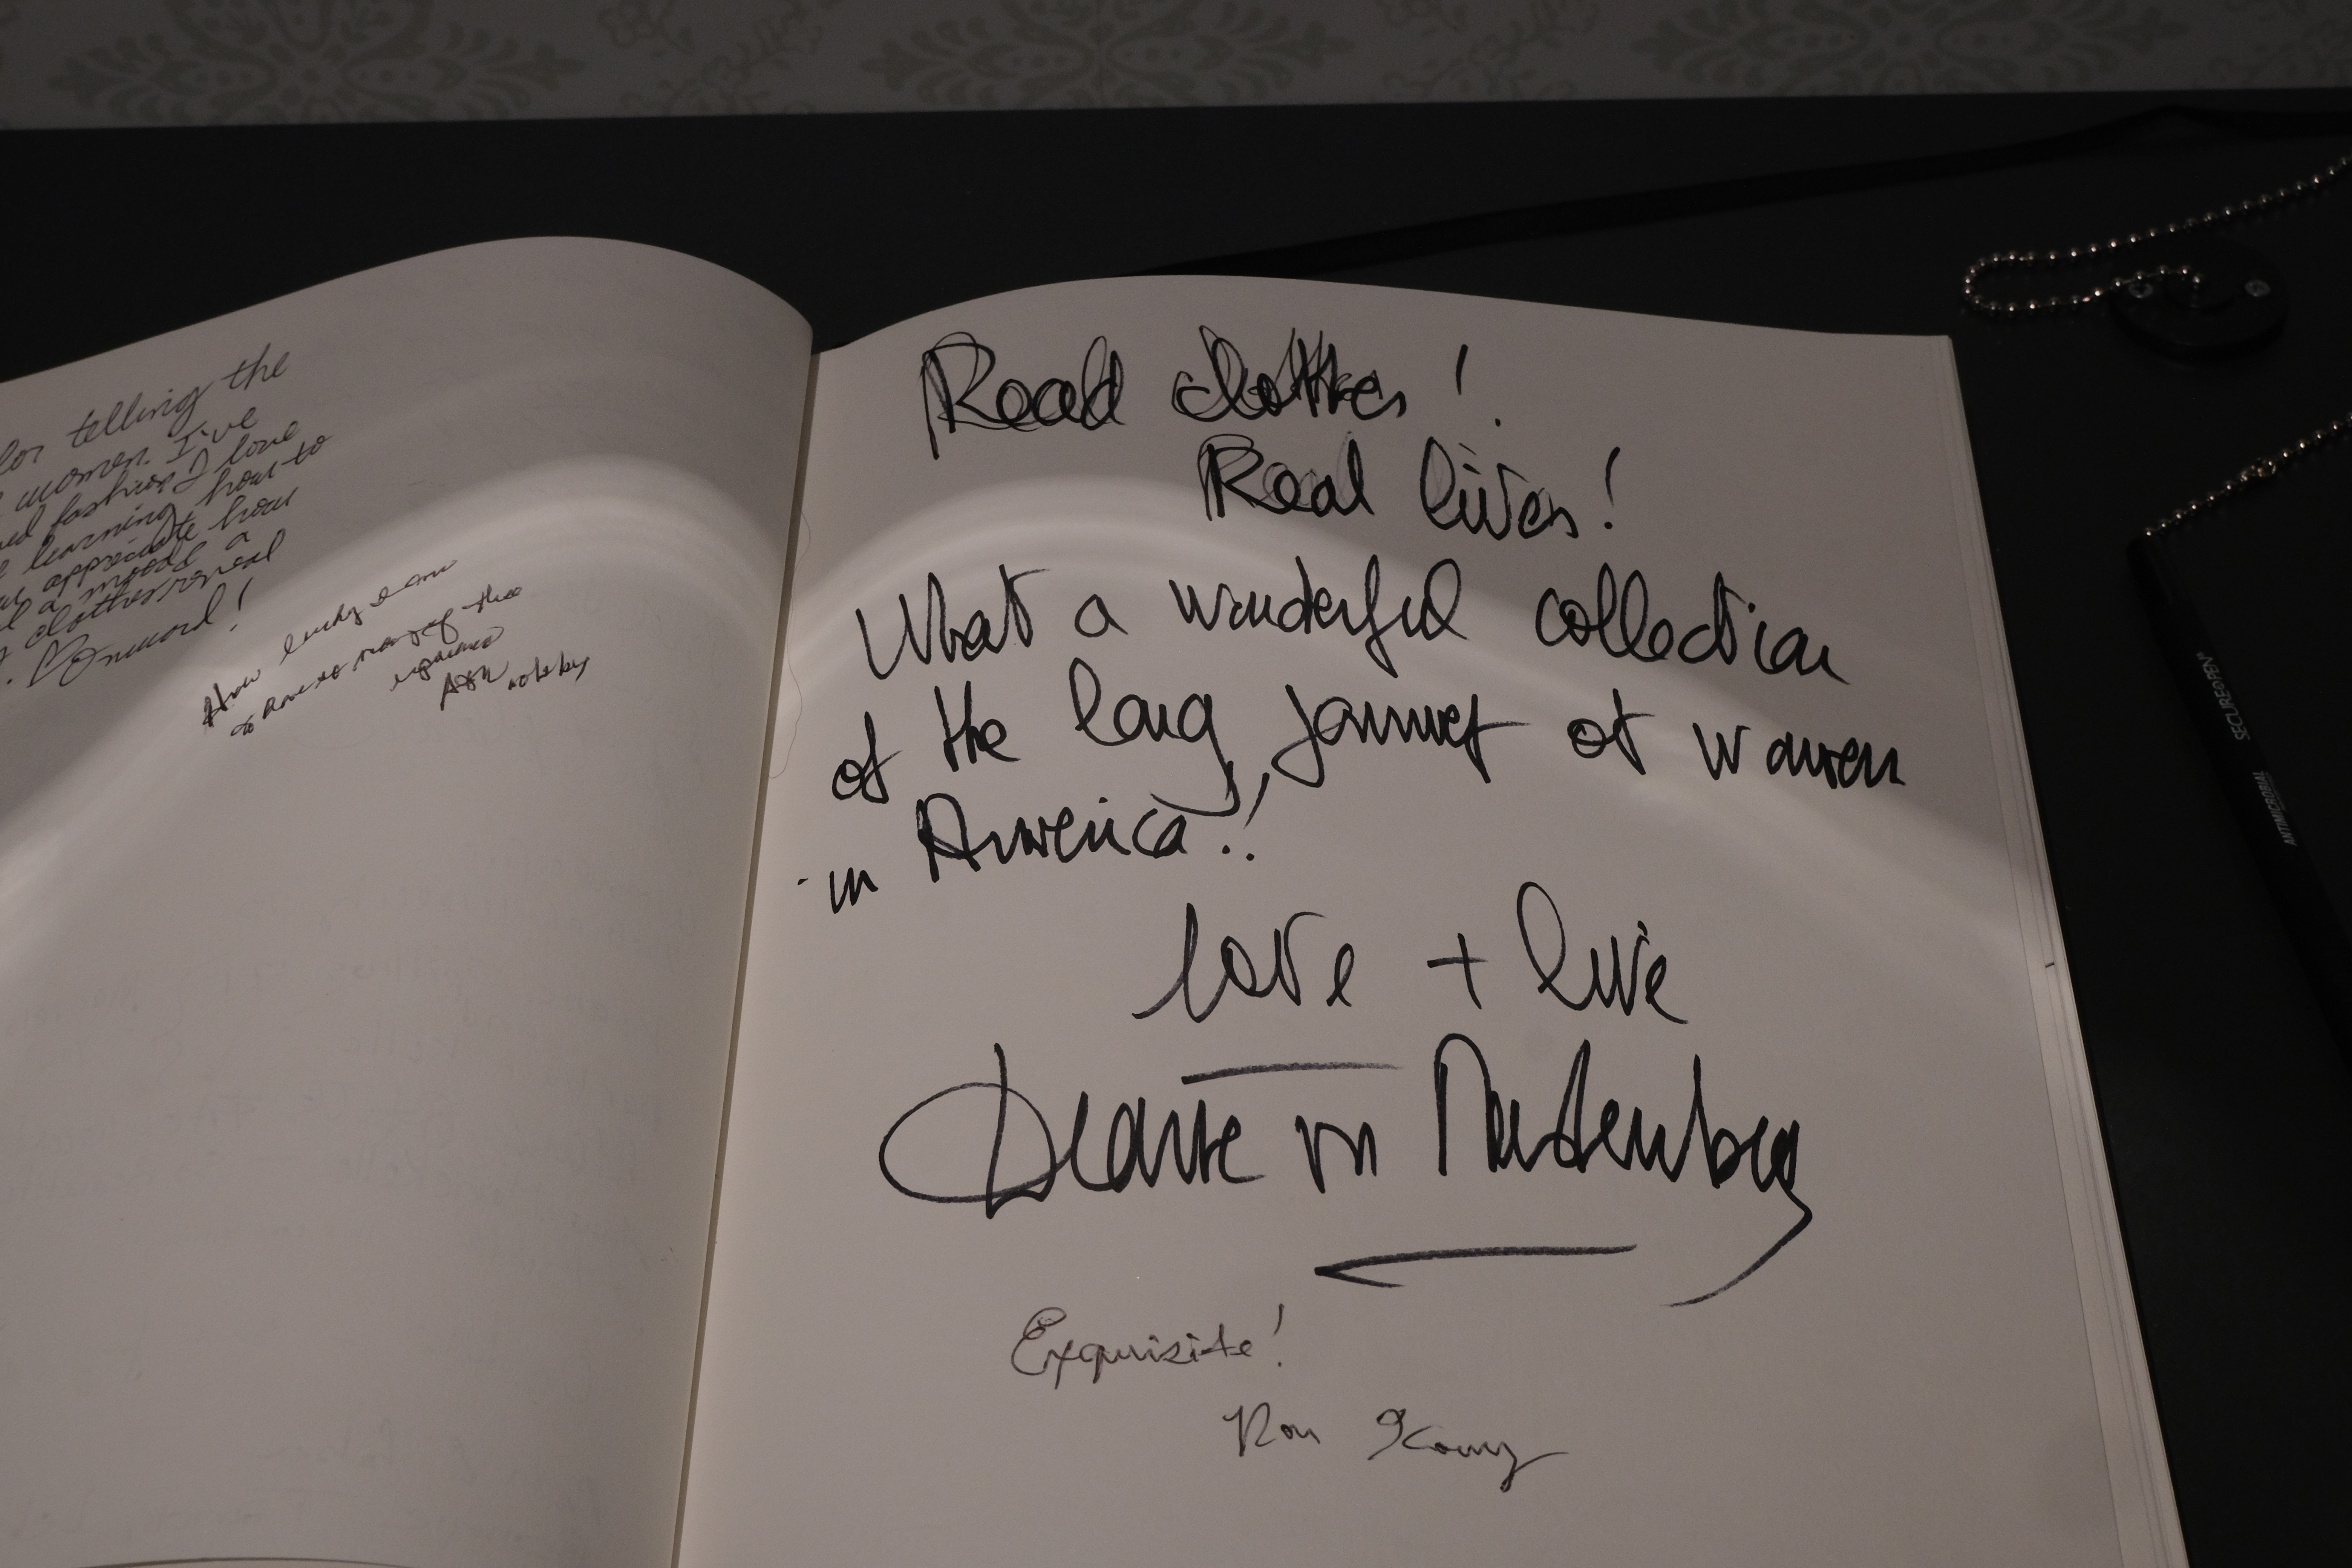 for telling the
women. I've
fashion I love
learning how to
appreciate how
a mood a
clothes reveal
Onward!
How lucky I am
to many of the
Read clothes!
Real lives!
What a wonderful collection
of the long journey of women
in America!!
love + live
Diane von Furstenberg
Exquisite!
Ron
SECUREAPEN
ANTIMICROBIAL